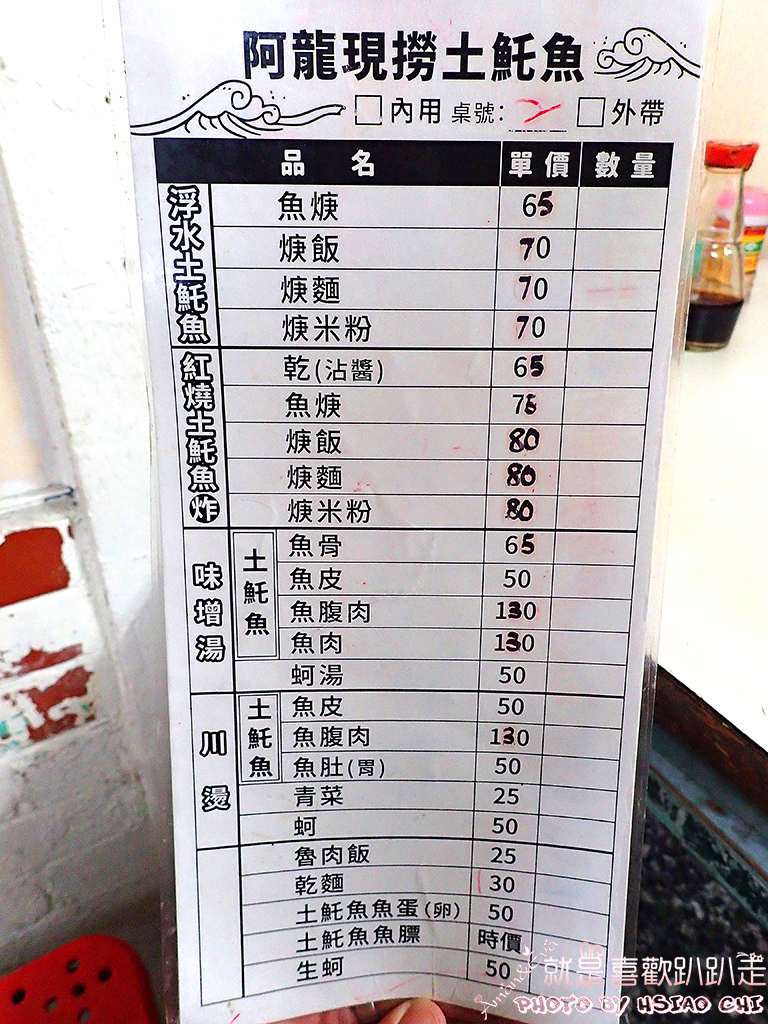 阿龍現撈土魠魚
內用 桌號: 2 外帶
品名 單價 數量
浮水土魠魚
魚焿 65
焿飯 70
焿麵 70
焿米粉 70
紅燒土魠魚炸
乾(沾醬) 65
魚焿 75
焿飯 80
焿麵 80
焿米粉 80
味增湯
土魠魚
魚骨 65
魚皮 50
魚腹肉 130
魚肉 130
蚵湯 50
川燙
土魠魚
魚皮 50
魚腹肉 130
魚肚(胃) 50
青菜 25
蚵 50
魯肉飯 25
乾麵 30
土魠魚魚蛋(卵) 50
土魠魚魚膘 時價
生蚵 50
就是喜歡趴趴走
PHOTO BY HSIAO CHI